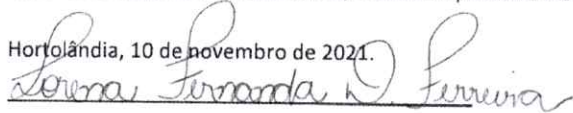 Hortolândia, 10 de novembro de 2021.
Lorena Fernanda D. Ferreira